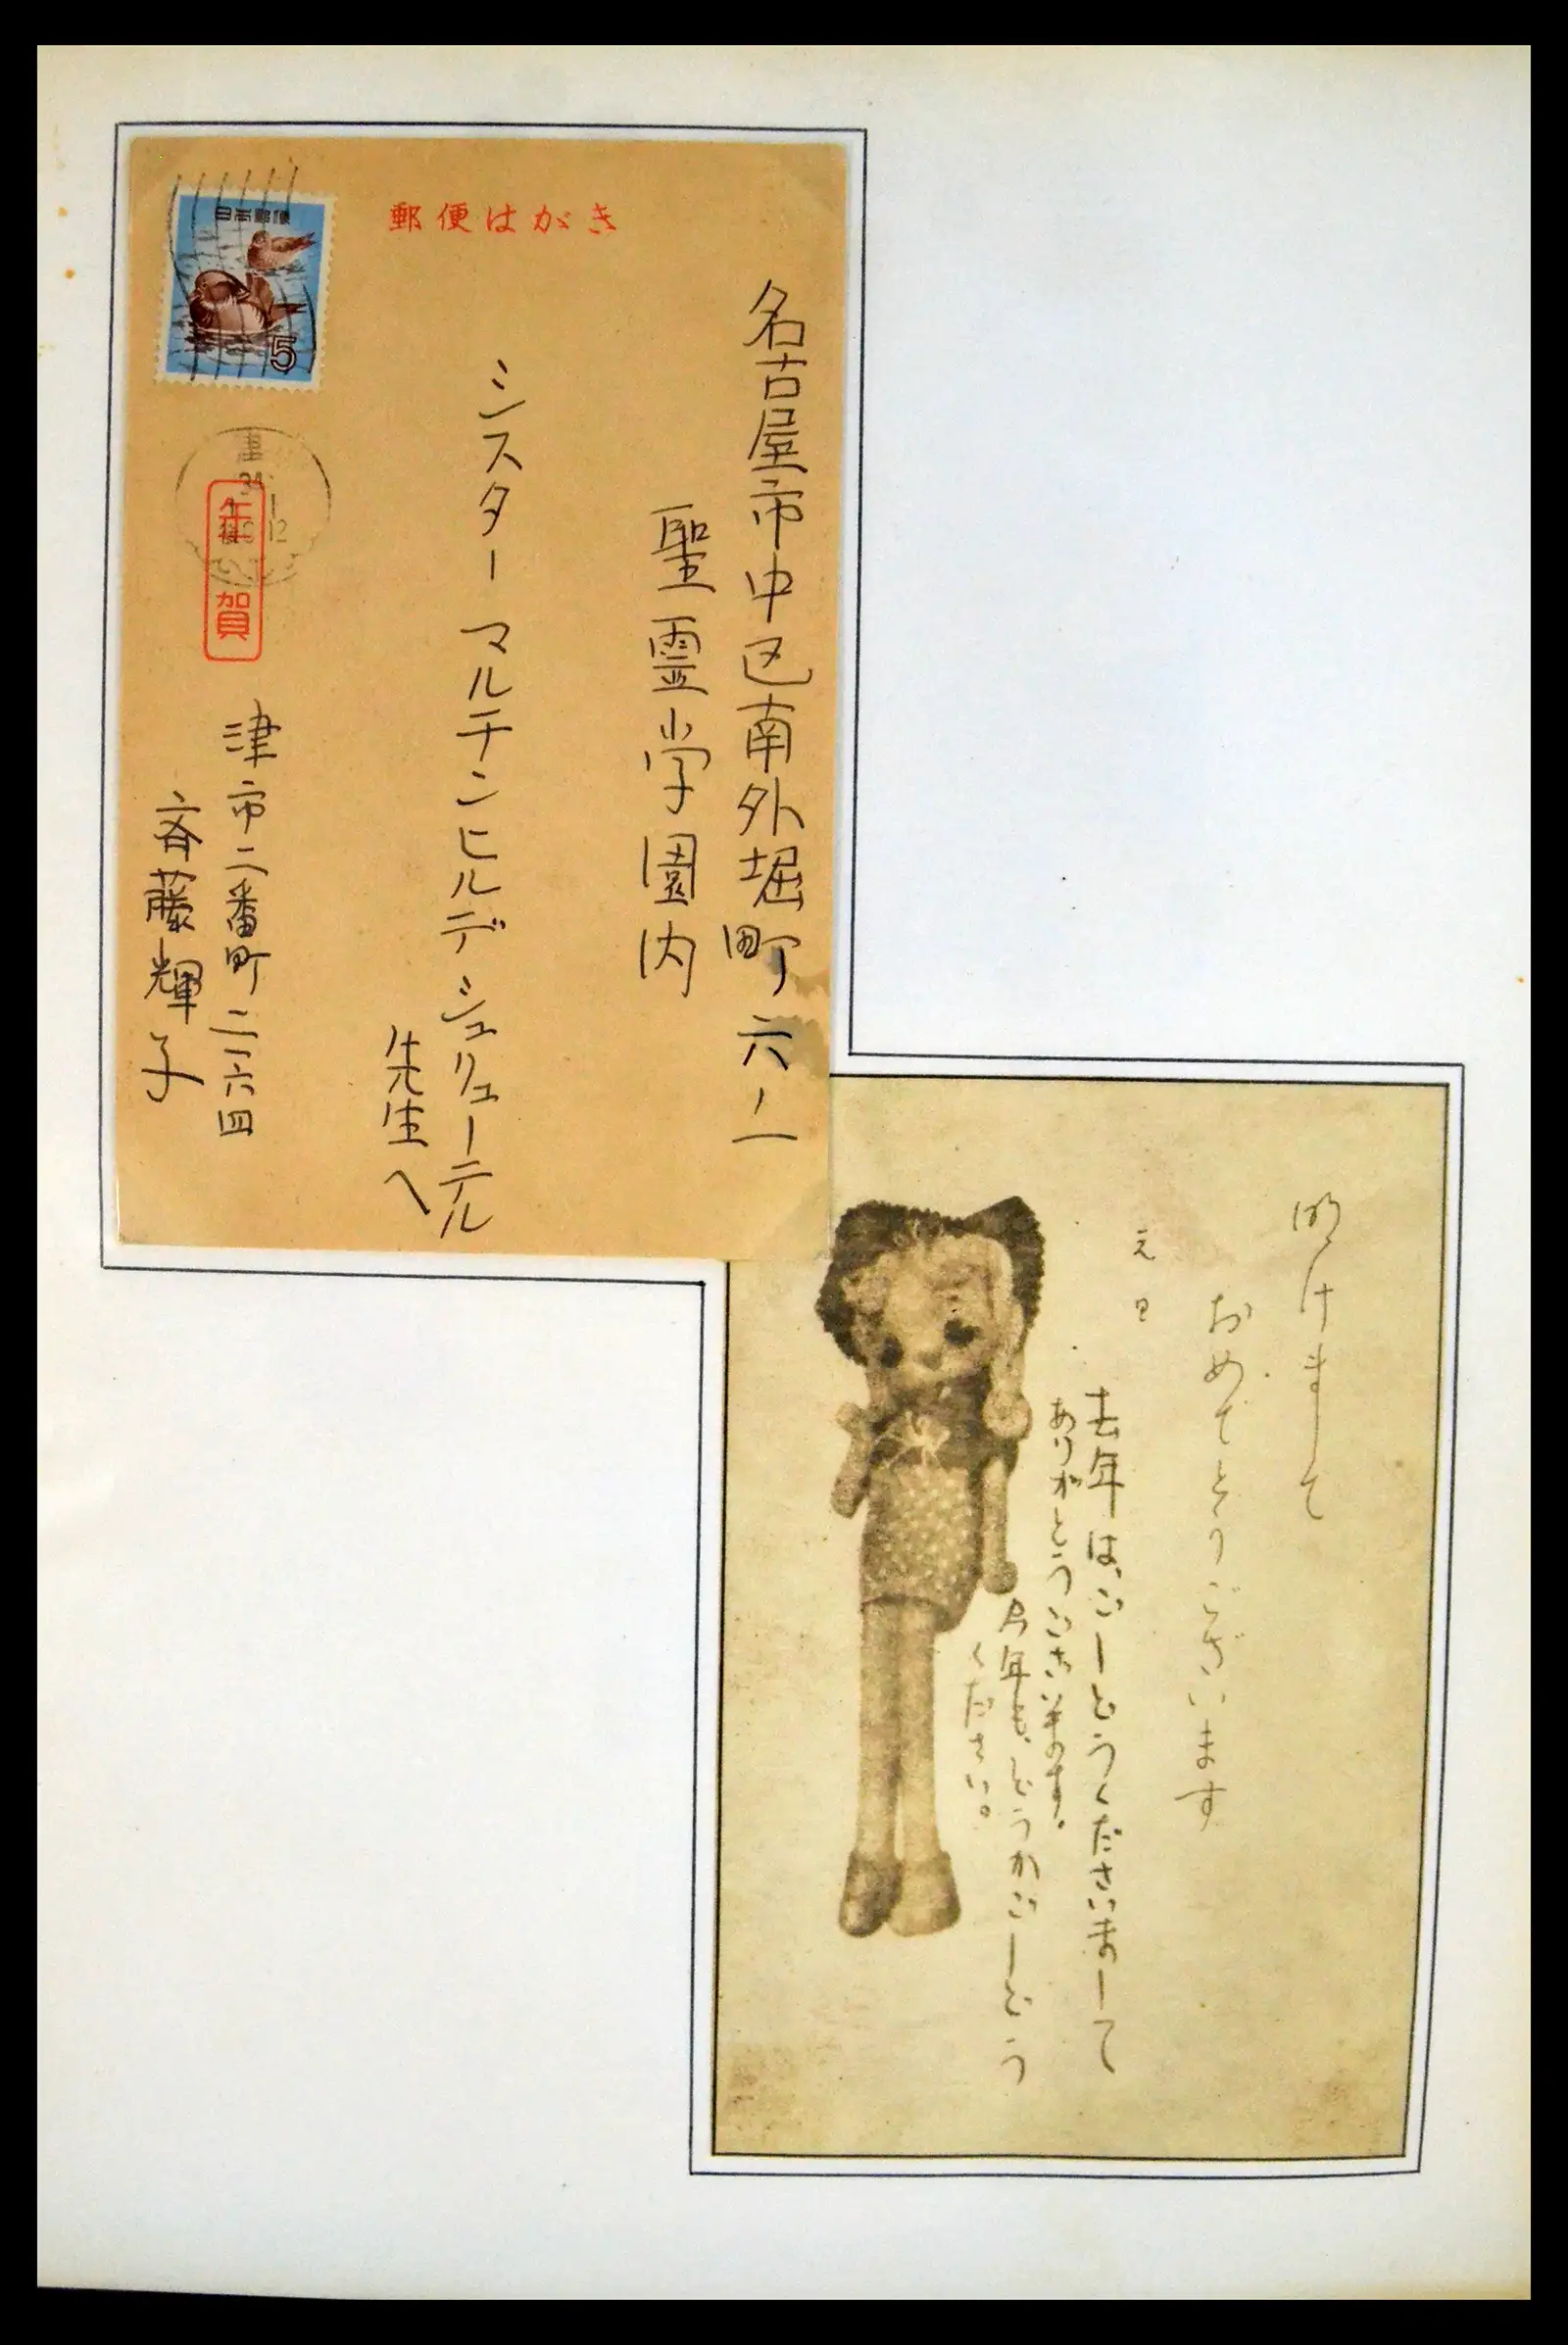 郵便はがき
日本郵便
5
津
年賀
名古屋市中区南外堀町六ノ一
聖霊学園内
シスターマルチンヒルデシュリューテル
先生へ
津市二番町二一六四
斉藤輝子
明けまして
おめでとうございます
元日
去年は、ごしどうくださいまして
ありがとうございます。
今年も、どうかごしどう
ください。